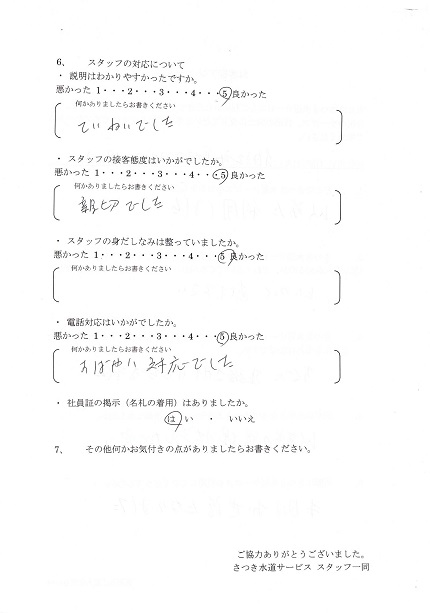 6、 スタッフの対応について
・ 説明はわかりやすかったですか。
悪かった 1・・・2・・・3・・・4・・・5 良かった
何かありましたらお書きください
ていねいでした
・ スタッフの接客態度はいかがでしたか。
悪かった 1・・・2・・・3・・・4・・・5 良かった
何かありましたらお書きください
親切でした
・ スタッフの身だしなみは整っていましたか。
悪かった 1・・・2・・・3・・・4・・・5 良かった
何かありましたらお書きください
・ 電話対応はいかがでしたか。
悪かった 1・・・2・・・3・・・4・・・5 良かった
何かありましたらお書きください
すばやい対応でした
・ 社員証の掲示（名札の着用）はありましたか。
はい ・ いいえ
7、 その他何かお気付きの点がありましたらお書きください。
ご協力ありがとうございました。
さつき水道サービス スタッフ一同